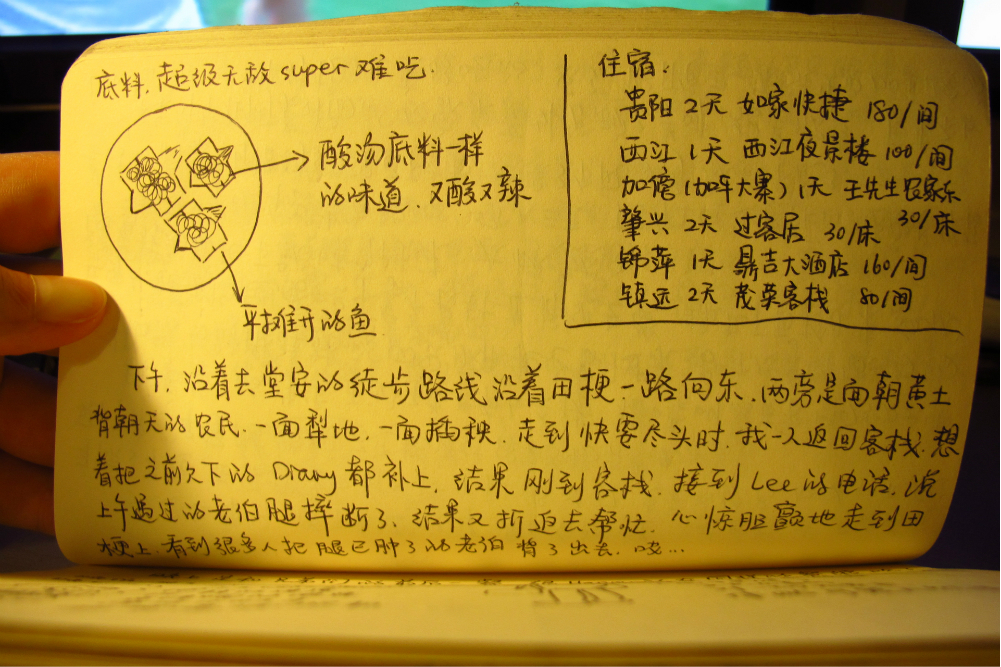 底料.超级无敌super难吃.
酸汤底料一样
的味道.又酸又辣
平摊开的鱼
住宿.
贵阳 2天 如家快捷 180/间
西江 1天 西江夜景楼 100/间
加榜(加车大寨) 1天 王先生农家乐
30/床
肇兴 2天 过客居 30/床
锦萍 1天 鼎吉大酒店 160/间
镇远 2天 茂荣客栈 80/间
下午.沿着去堂安的徒步路线沿着田梗一路向东.两旁是面朝黄土
背朝天的农民.一面犁地.一面插秧.走到快要尽头时.我一人返回客栈.想
着把之前欠下的Diary都补上.结果刚到客栈.接到Lee的电话.说
上午遇过的老伯腿摔断了.结果又折返去帮忙.心惊胆颤地走到田
梗上.看到很多人把腿已肿了的老伯背了出去.唉...